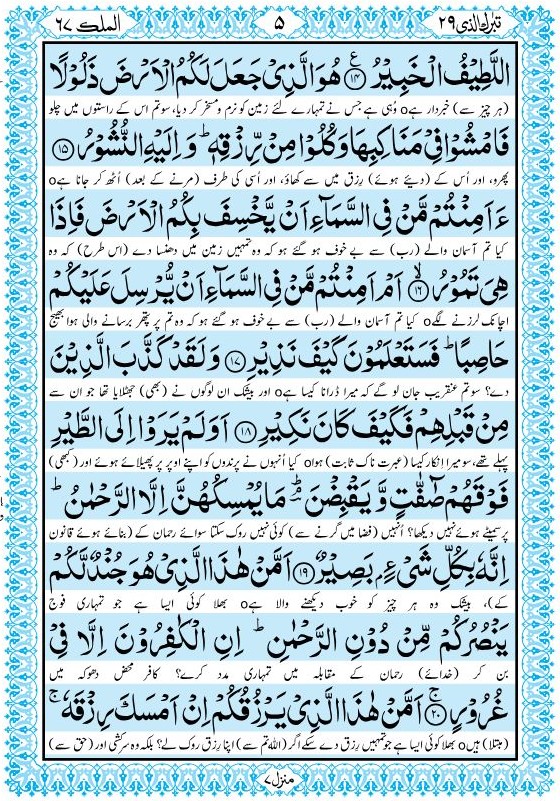 تبٰرك الذی ۲۹ ۵ الملك ۶۷
اللَّطِيْفُ الْخَبِيْرُ ﴿۱۴﴾ هُوَ الَّذِیْ جَعَلَ لَكُمُ الْاَرْضَ ذَلُوْلًا
(ہر چیز سے) خبردار ہے o وُہی ہے جس نے تمہارے لئے زمین کو نرم و مسخر کر دیا، سو تم اس کے راستوں میں چلو
فَامْشُوْا فِیْ مَنَاكِبِهَا وَ كُلُوْا مِنْ رِّزْقِهٖ ؕ وَ اِلَيْهِ النُّشُوْرُ ﴿۱۵﴾
پھرو، اور اُس کے (دیئے ہوئے) رِزق میں سے کھاؤ، اور اُسی کی طرف (مرنے کے بعد) اُٹھ کر جانا ہے o
ءَاَمِنْتُمْ مَّنْ فِی السَّمَآءِ اَنْ يَّخْسِفَ بِكُمُ الْاَرْضَ فَاِذَا
کیا تم آسمان والے (رب) سے بے خوف ہو گئے ہو کہ وہ تمہیں زمین میں دھنسا دے (اس طرح) کہ وہ
هِیَ تَمُوْرُ ﴿۱۶﴾ اَمْ اَمِنْتُمْ مَّنْ فِی السَّمَآءِ اَنْ يُّرْسِلَ عَلَيْكُمْ
اچانک لرزنے لگے o کیا تم آسمان والے (رب) سے بے خوف ہو گئے ہو کہ وہ تم پر پتھر برسانے والی ہوا بھیج
حَاصِبًا ؕ فَسَتَعْلَمُوْنَ كَيْفَ نَذِيْرِ ﴿۱۷﴾ وَ لَقَدْ كَذَّبَ الَّذِيْنَ
دے؟ سو تم عنقریب جان لو گے کہ میرا ڈرانا کیسا ہے o اور بیشک ان لوگوں نے (بھی) جھٹلایا تھا جو ان سے
مِنْ قَبْلِهِمْ فَكَيْفَ كَانَ نَكِيْرِ ﴿۱۸﴾ اَوَ لَمْ يَرَوْا اِلَی الطَّيْرِ
پہلے تھے، سو میرا اِنکار کیسا (عبرت ناک ثابت) ہوا o کیا اُنہوں نے پرندوں کو اپنے اوپر پر پھیلائے ہوئے اور (کبھی)
فَوْقَهُمْ صٰٓفّٰتٍ وَّ يَقْبِضْنَ ؔۘ مَا يُمْسِكُهُنَّ اِلَّا الرَّحْمٰنُ ؕ
پر سمیٹے ہوئے نہیں دیکھا؟ اُنہیں (فضا میں گرنے سے) کوئی نہیں روک سکتا سوائے رحمان کے (بنائے ہوئے قانون
اِنَّهٗ بِكُلِّ شَیْءٍۭ بَصِيْرٌ ﴿۱۹﴾ اَمَّنْ هٰذَا الَّذِیْ هُوَ جُنْدٌ لَّكُمْ
کے)، بیشک وہ ہر چیز کو خوب دیکھنے والا ہے o بھلا کوئی ایسا ہے جو تمہاری فوج
يَنْصُرُكُمْ مِّنْ دُوْنِ الرَّحْمٰنِ ؕ اِنِ الْكٰفِرُوْنَ اِلَّا فِیْ
بن کر (خدائے) رحمان کے مقابلہ میں تمہاری مدد کرے؟ کافر محض دھوکہ میں
غُرُوْرٍ ﴿ۚ۲۰﴾ اَمَّنْ هٰذَا الَّذِیْ يَرْزُقُكُمْ اِنْ اَمْسَكَ رِزْقَهٗ ۚ
(مبتلا) ہیں o بھلا کوئی ایسا ہے جو تمہیں رِزق دے سکے اگر (اللہ تم سے) اپنا رِزق روک لے؟ بلکہ وہ سرکشی اور (حق سے)
منزل ۷